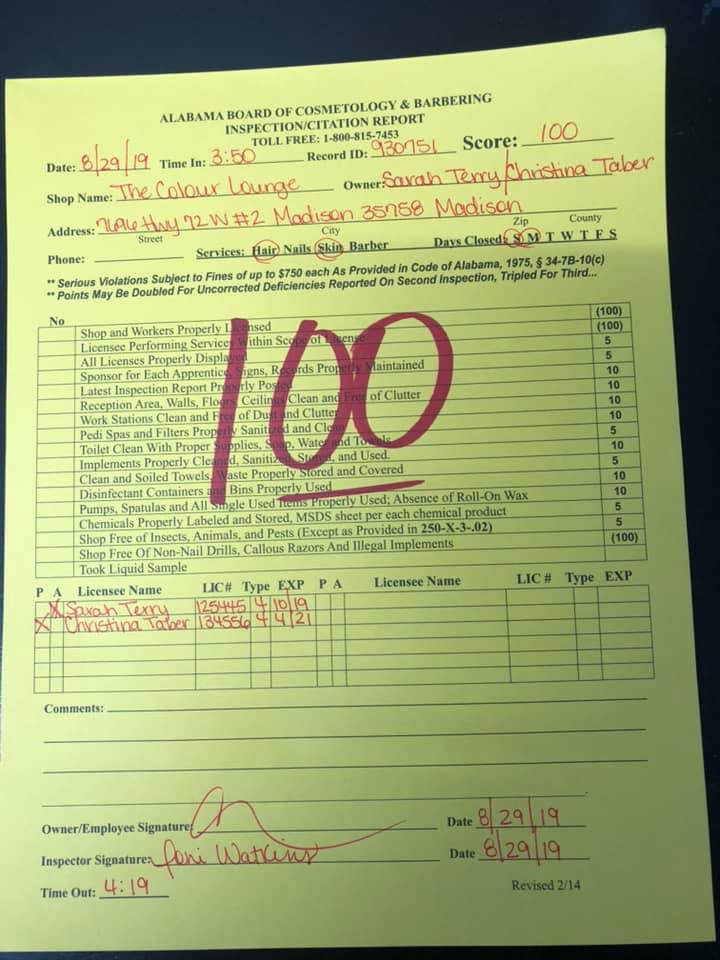 ALABAMA BOARD OF COSMETOLOGY & BARBERING
INSPECTION/CITATION REPORT
TOLL FREE: 1-800-815-7453
Date: 8/29/19 Time In: 3:50 Record ID: 930751 Score: 100
Shop Name: The Colour Lounge Owner: Sarah Terry/Christina Taber
Address: 7696 Hwy 72 W #2 Madison 35758 Madison
Street City Zip County
Phone: Services: Hair Nails Skin Barber Days Closed: S M T W T F S
** Serious Violations Subject to Fines of up to $750 each As Provided in Code of Alabama, 1975, § 34-7B-10(c)
** Points May Be Doubled For Uncorrected Deficiencies Reported On Second Inspection, Tripled For Third...
No
Shop and Workers Properly Licensed (100)
Licensee Performing Services Within Scope of License (100)
All Licenses Properly Displayed 5
Sponsor for Each Apprentice, Signs, Records Properly Maintained 5
Latest Inspection Report Properly Posted 10
Reception Area, Walls, Floors, Ceilings Clean and Free of Clutter 10
Work Stations Clean and Free of Dust and Clutter 10
Pedi Spas and Filters Properly Sanitized and Clean 10
Toilet Clean With Proper Supplies, Soap, Water and Towels 5
Implements Properly Cleaned, Sanitized, Stored, and Used. 10
Clean and Soiled Towels, Waste Properly Stored and Covered 5
Disinfectant Containers and Bins Properly Used 10
Pumps, Spatulas and All Single Used Items Properly Used; Absence of Roll-On Wax 10
Chemicals Properly Labeled and Stored, MSDS sheet per each chemical product 5
Shop Free of Insects, Animals, and Pests (Except as Provided in 250-X-3-.02) 5
Shop Free Of Non-Nail Drills, Callous Razors And Illegal Implements (100)
Took Liquid Sample
100
P A Licensee Name LIC# Type EXP P A Licensee Name LIC# Type EXP
X Sarah Terry 125445 4 10/19
X Christina Taber 134556 4 4/21
Comments:
Owner/Employee Signature: Date 8/29/19
Inspector Signature: Joni Watkins Date 8/29/19
Time Out: 4:19 Revised 2/14